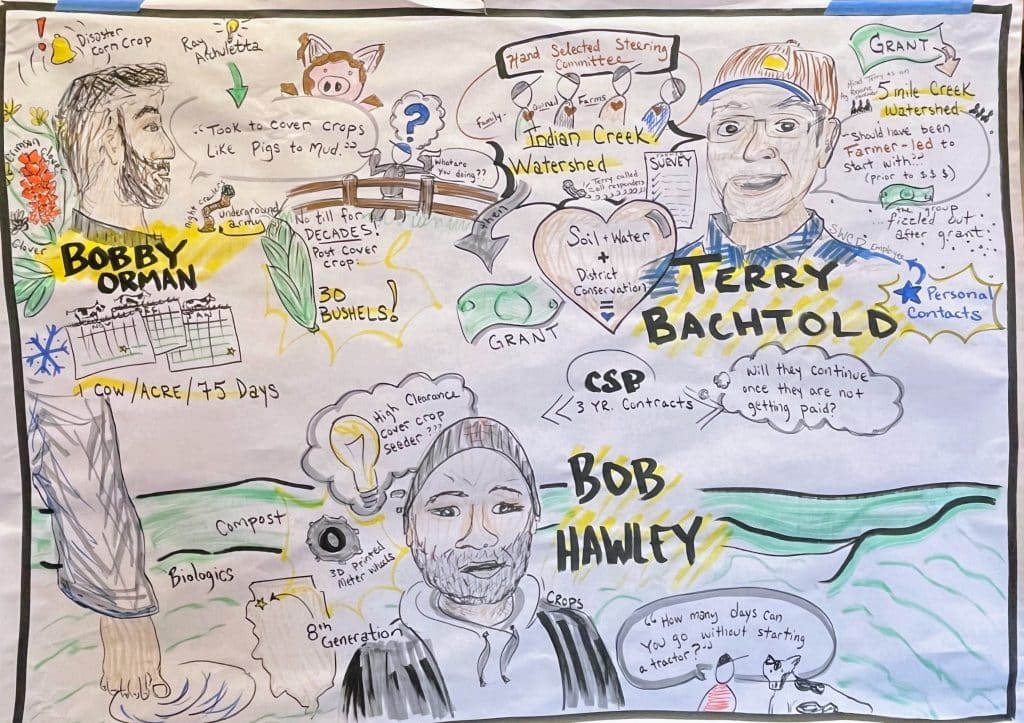 Disaster
Corn Crop
Ray
Archuletta
"Took to cover crops
Like Pigs to Mud."
Crimson Clover
Clover
night crawler
underground
army
BOBBY
ORMAN
?
What are
you doing??
No till for
DECADES!
Post Cover
crop:
30
BUSHELS!
1 COW/ACRE/75 Days
Hand Selected Steering
Committee
Family-
owned Farms
Indian Creek
Watershed
Terry called
all responders
SURVEY
Soil + Water
+
District
Conservation
GRANT
GRANT
Hired Terry as an
5 mile Creek
Watershed
Should have been
Farmer-led to
start with...
(prior to $$$)
...the group
fizzled out
after grant
SWCD Employee
TERRY
BACHTOLD
Personal
Contacts
CSP
3 YR. Contracts
Will they continue
once they are not
getting paid?
High Clearance
cover crop
seeder???
Compost
Biologics
3D Printed
Meter Wheels
8th
Generation
BOB
HAWLEY
CROPS
"How many days can
you go without starting
a tractor?"